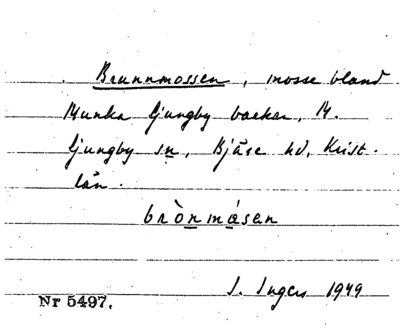 Brunnmossen, mosse bland
Munka Ljungby backar, M.
Ljungby sn, Bjäre hd, Krist.
län.
brònmåsen
I. Ingers 1949
Nr 5497.